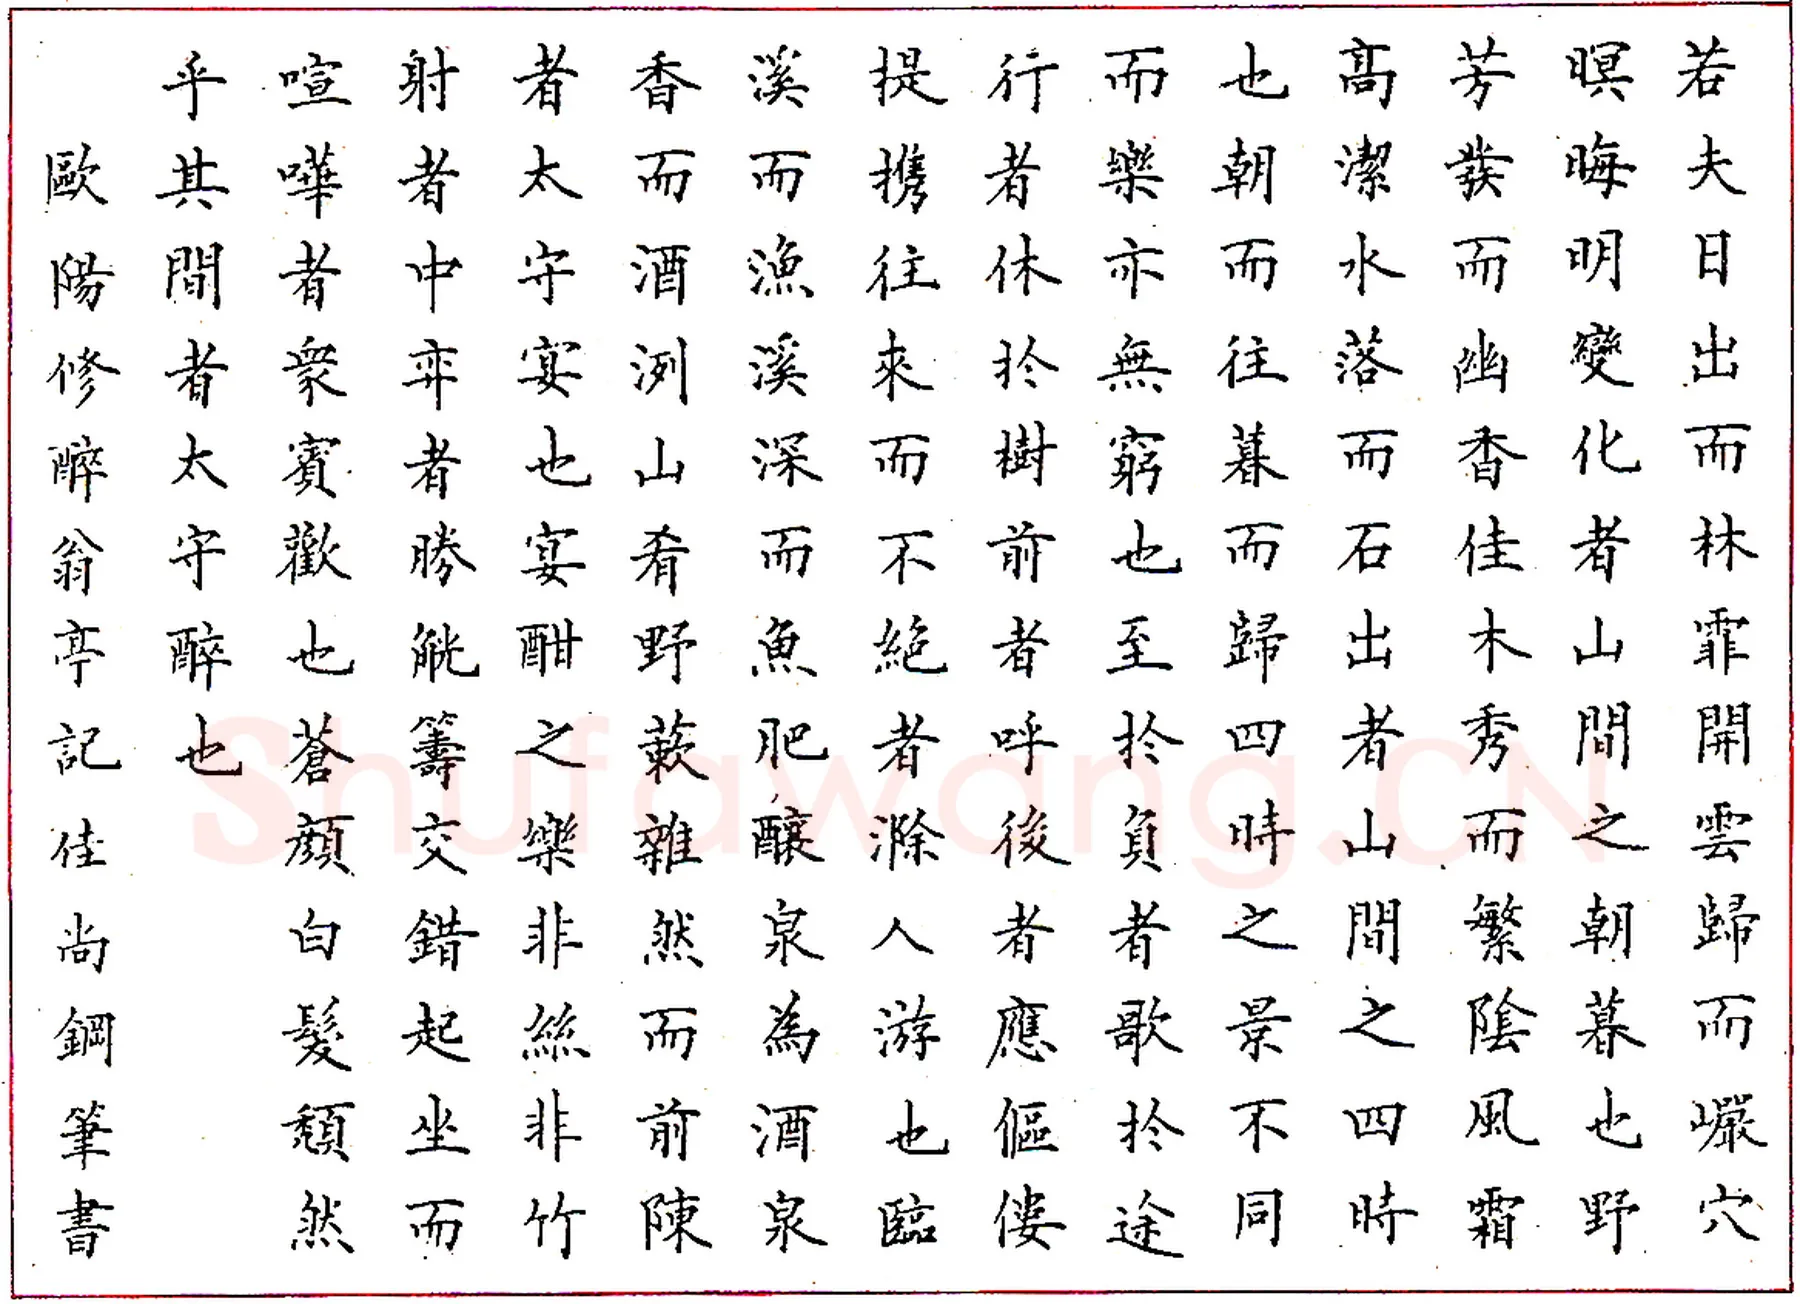 若夫日出而林霏開雲歸而巖穴
暝晦明變化者山間之朝暮也野
芳發而幽香佳木秀而繁陰風霜
髙潔水落而石出者山間之四時
也朝而往暮而歸四時之景不同
而樂亦無窮也至於負者歌於途
行者休於樹前者呼後者應傴僂
提携往來而不絕者滁人游也臨
溪而漁溪深而魚肥釀泉為酒泉
香而酒洌山肴野蔌雜然而前陳
者太守宴也宴酣之樂非絲非竹
射者中弈者勝觥籌交錯起坐而
喧嘩者衆賓歡也蒼顏白髮頹然
乎其間者太守醉也
歐陽修醉翁亭記佳尚鋼筆書
Shufawang.CN